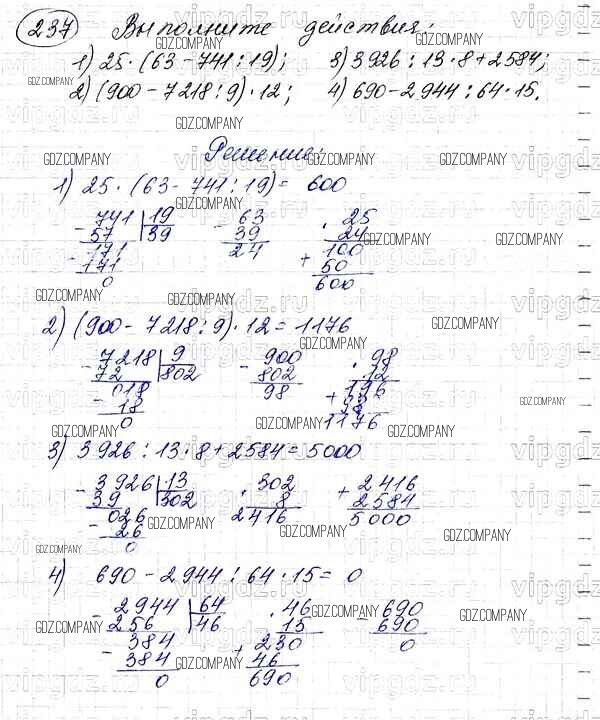 237 Выполните действия:
1) 25·(63-741:19); 3) 3926:13·8+2584;
2) (900-7218:9)·12; 4) 690-2944:64·15.
Решение:
1) 25·(63-741:19)=600
- 741 | 19 - 63 · 25
57 | 39 39 24
- 171 24 100
171 + 50
0 600
2) (900-7218:9)·12=1176
- 7218 | 9 - 900 · 98
72 | 802 802 12
- 018 98 196
18 + 98
0 1176
3) 3926:13·8+2584=5000
- 3926 | 13 · 302 + 2416
39 | 302 8 2584
- 026 2416 5000
26
0
4) 690-2944:64·15=0
- 2944 | 64 · 46 - 690
256 | 46 15 690
- 384 + 230 0
384 46
0 690
GDZ.COMPANY
vipgdz.ru